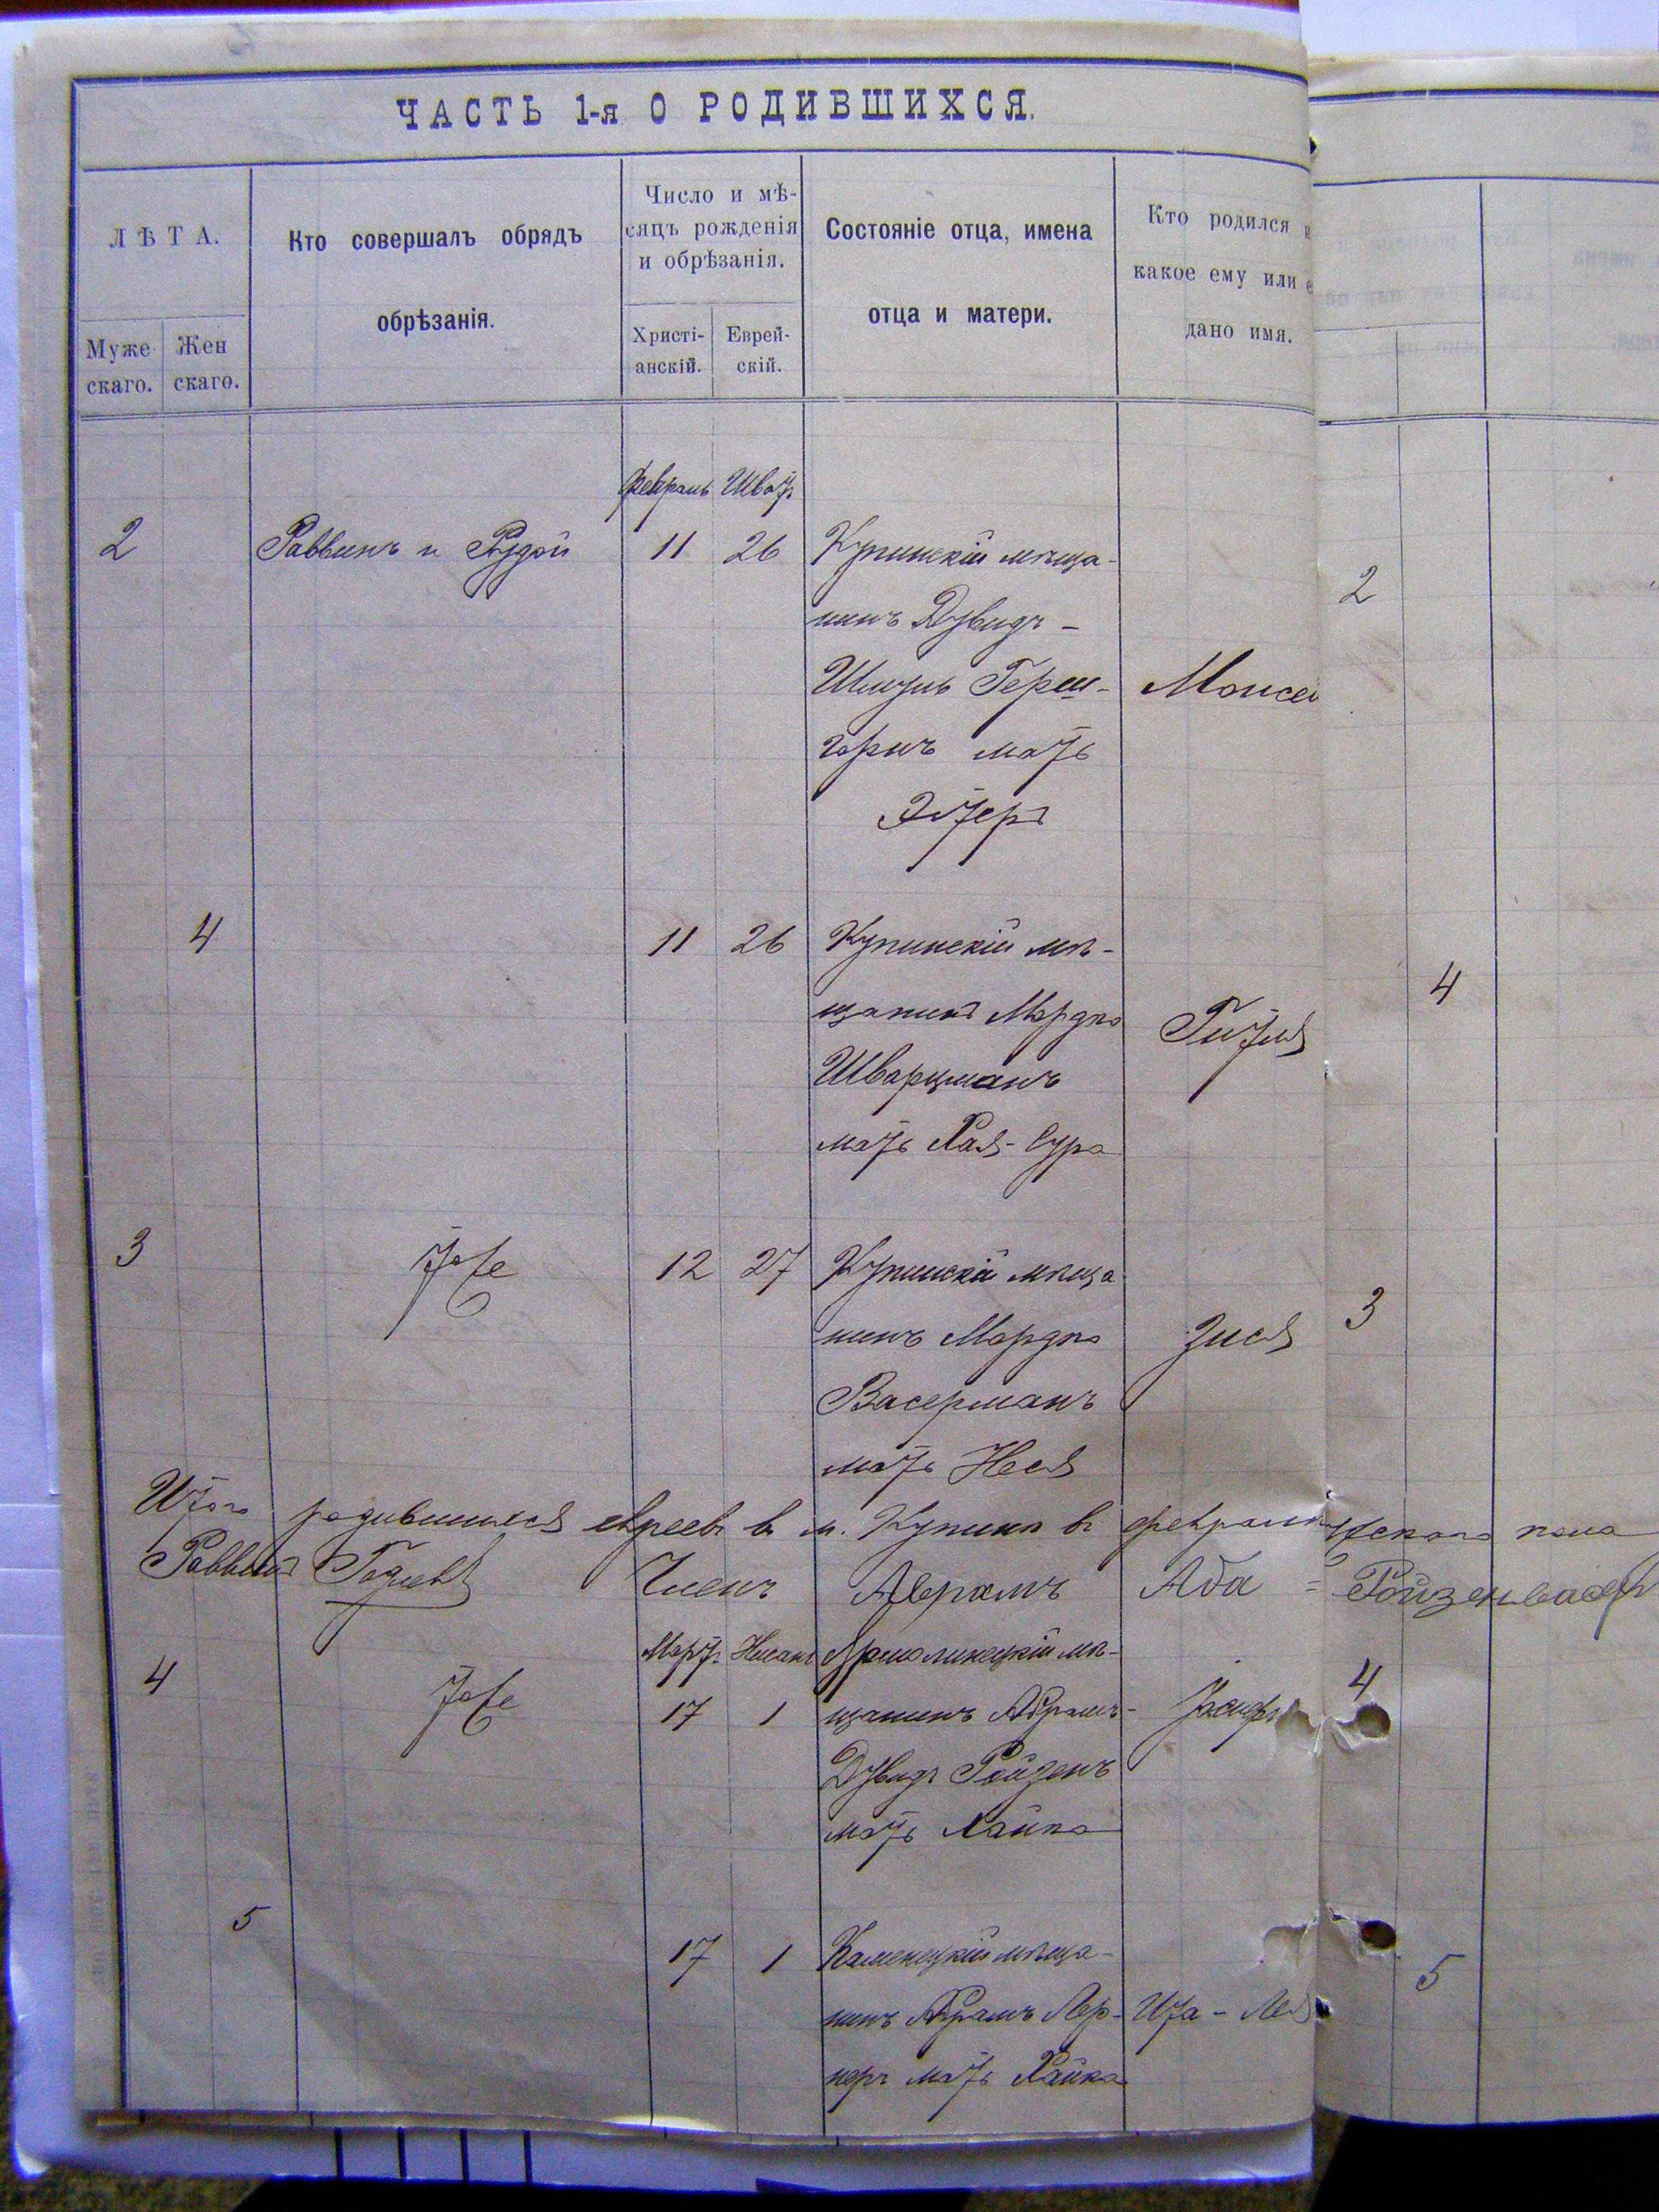 ЧАСТЬ 1-я О РОДИВШИХСЯ.
ЛѢТА.
Муже-
скаго.
Жен
скаго.
Кто совершалъ обрядъ
обрѣзанія.
Число и мѣ-
сяцъ рожденія
и обрѣзанія.
Христі-
анскій.
Еврей-
скій.
Состояніе отца, имена
отца и матери.
Кто родился и
какое ему или е
дано имя.
Февраль Шватъ
2 Раввинъ и Рудой 11 26 Купинскій мѣща-
нинъ Дувидъ-
Шмуль Герш-
горнъ мать
Эстеръ
Моисей
2
4 11 26 Купинскій мѣ-
щанинъ Мордко
Шварцманъ
мать Хая-Сура
Гитля
4
3 Тоже 12 27 Купинскій мѣща-
нинъ Мордко
Васерманъ
мать Неся
Зися
3
Итого родившихся евреевъ в м. Купинѣ въ февралѣ
Раввинъ Членъ Аврамъ Аба = Ройзенвасеръ
Мартъ Нисанъ
4 Тоже 17 1 Ярмолинецкій мѣ-
щанинъ Абрамъ-
Дувидъ Ройзенъ
мать Хайка
Іосифъ
4
5 17 1 Каменецкій мѣща-
нинъ Абрамъ Лер-
неръ мать Хайка
Ита-Лея
5